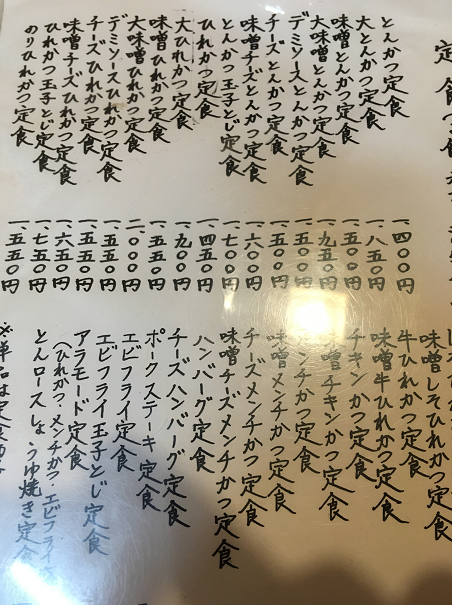 定食
とんかつ定食 一、四〇〇円
大とんかつ定食 一、八五〇円
味噌とんかつ定食 一、五〇〇円
大味噌とんかつ定食 一、九五〇円
デミソースとんかつ定食 一、五〇〇円
チーズとんかつ定食 一、五〇〇円
味噌チーズとんかつ定食 一、六〇〇円
とんかつ玉子とじ定食 一、七〇〇円
ひれかつ定食 一、四五〇円
大ひれかつ定食 一、九〇〇円
味噌ひれかつ定食 一、五五〇円
大味噌ひれかつ定食 二、〇〇〇円
デミソースひれかつ定食 一、五五〇円
チーズひれかつ定食 一、五五〇円
味噌チーズひれかつ定食 一、六五〇円
ひれかつ玉子とじ定食 一、七五〇円
のりひれかつ定食 一、五五〇円
味噌しそひれかつ定食
牛ひれかつ定食
味噌牛ひれかつ定食
チキンかつ定食
味噌チキンかつ定食
メンチかつ定食
味噌メンチかつ定食
チーズメンチかつ定食
味噌チーズメンチかつ定食
ハンバーグ定食
チーズハンバーグ定食
ポークステーキ定食
エビフライ定食
エビフライ玉子とじ定食
アラモード定食
（ひれかつ・メンチかつ・エビフライ
とんロースしょうゆ焼き定食
※単品は定食